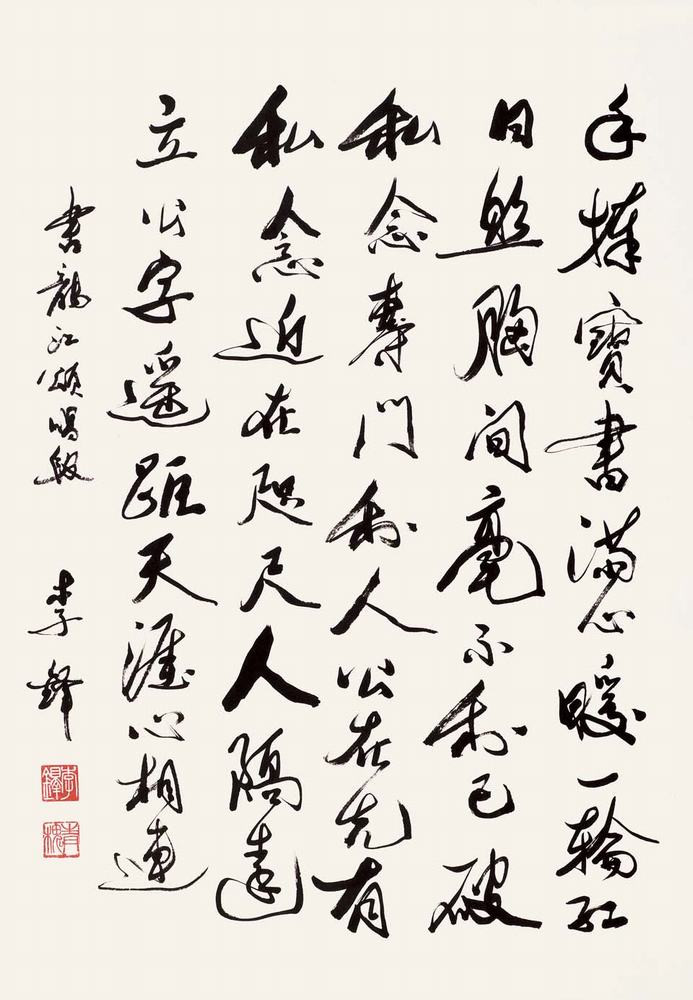 手捧寶書滿心暖一輪紅
日照胸間毫不利己破
私念專門利人公在先有
私念近在咫尺人隔遠
立公字遙距天涯心相連
書龍江頌唱段
李鐸
李鐸
青槐